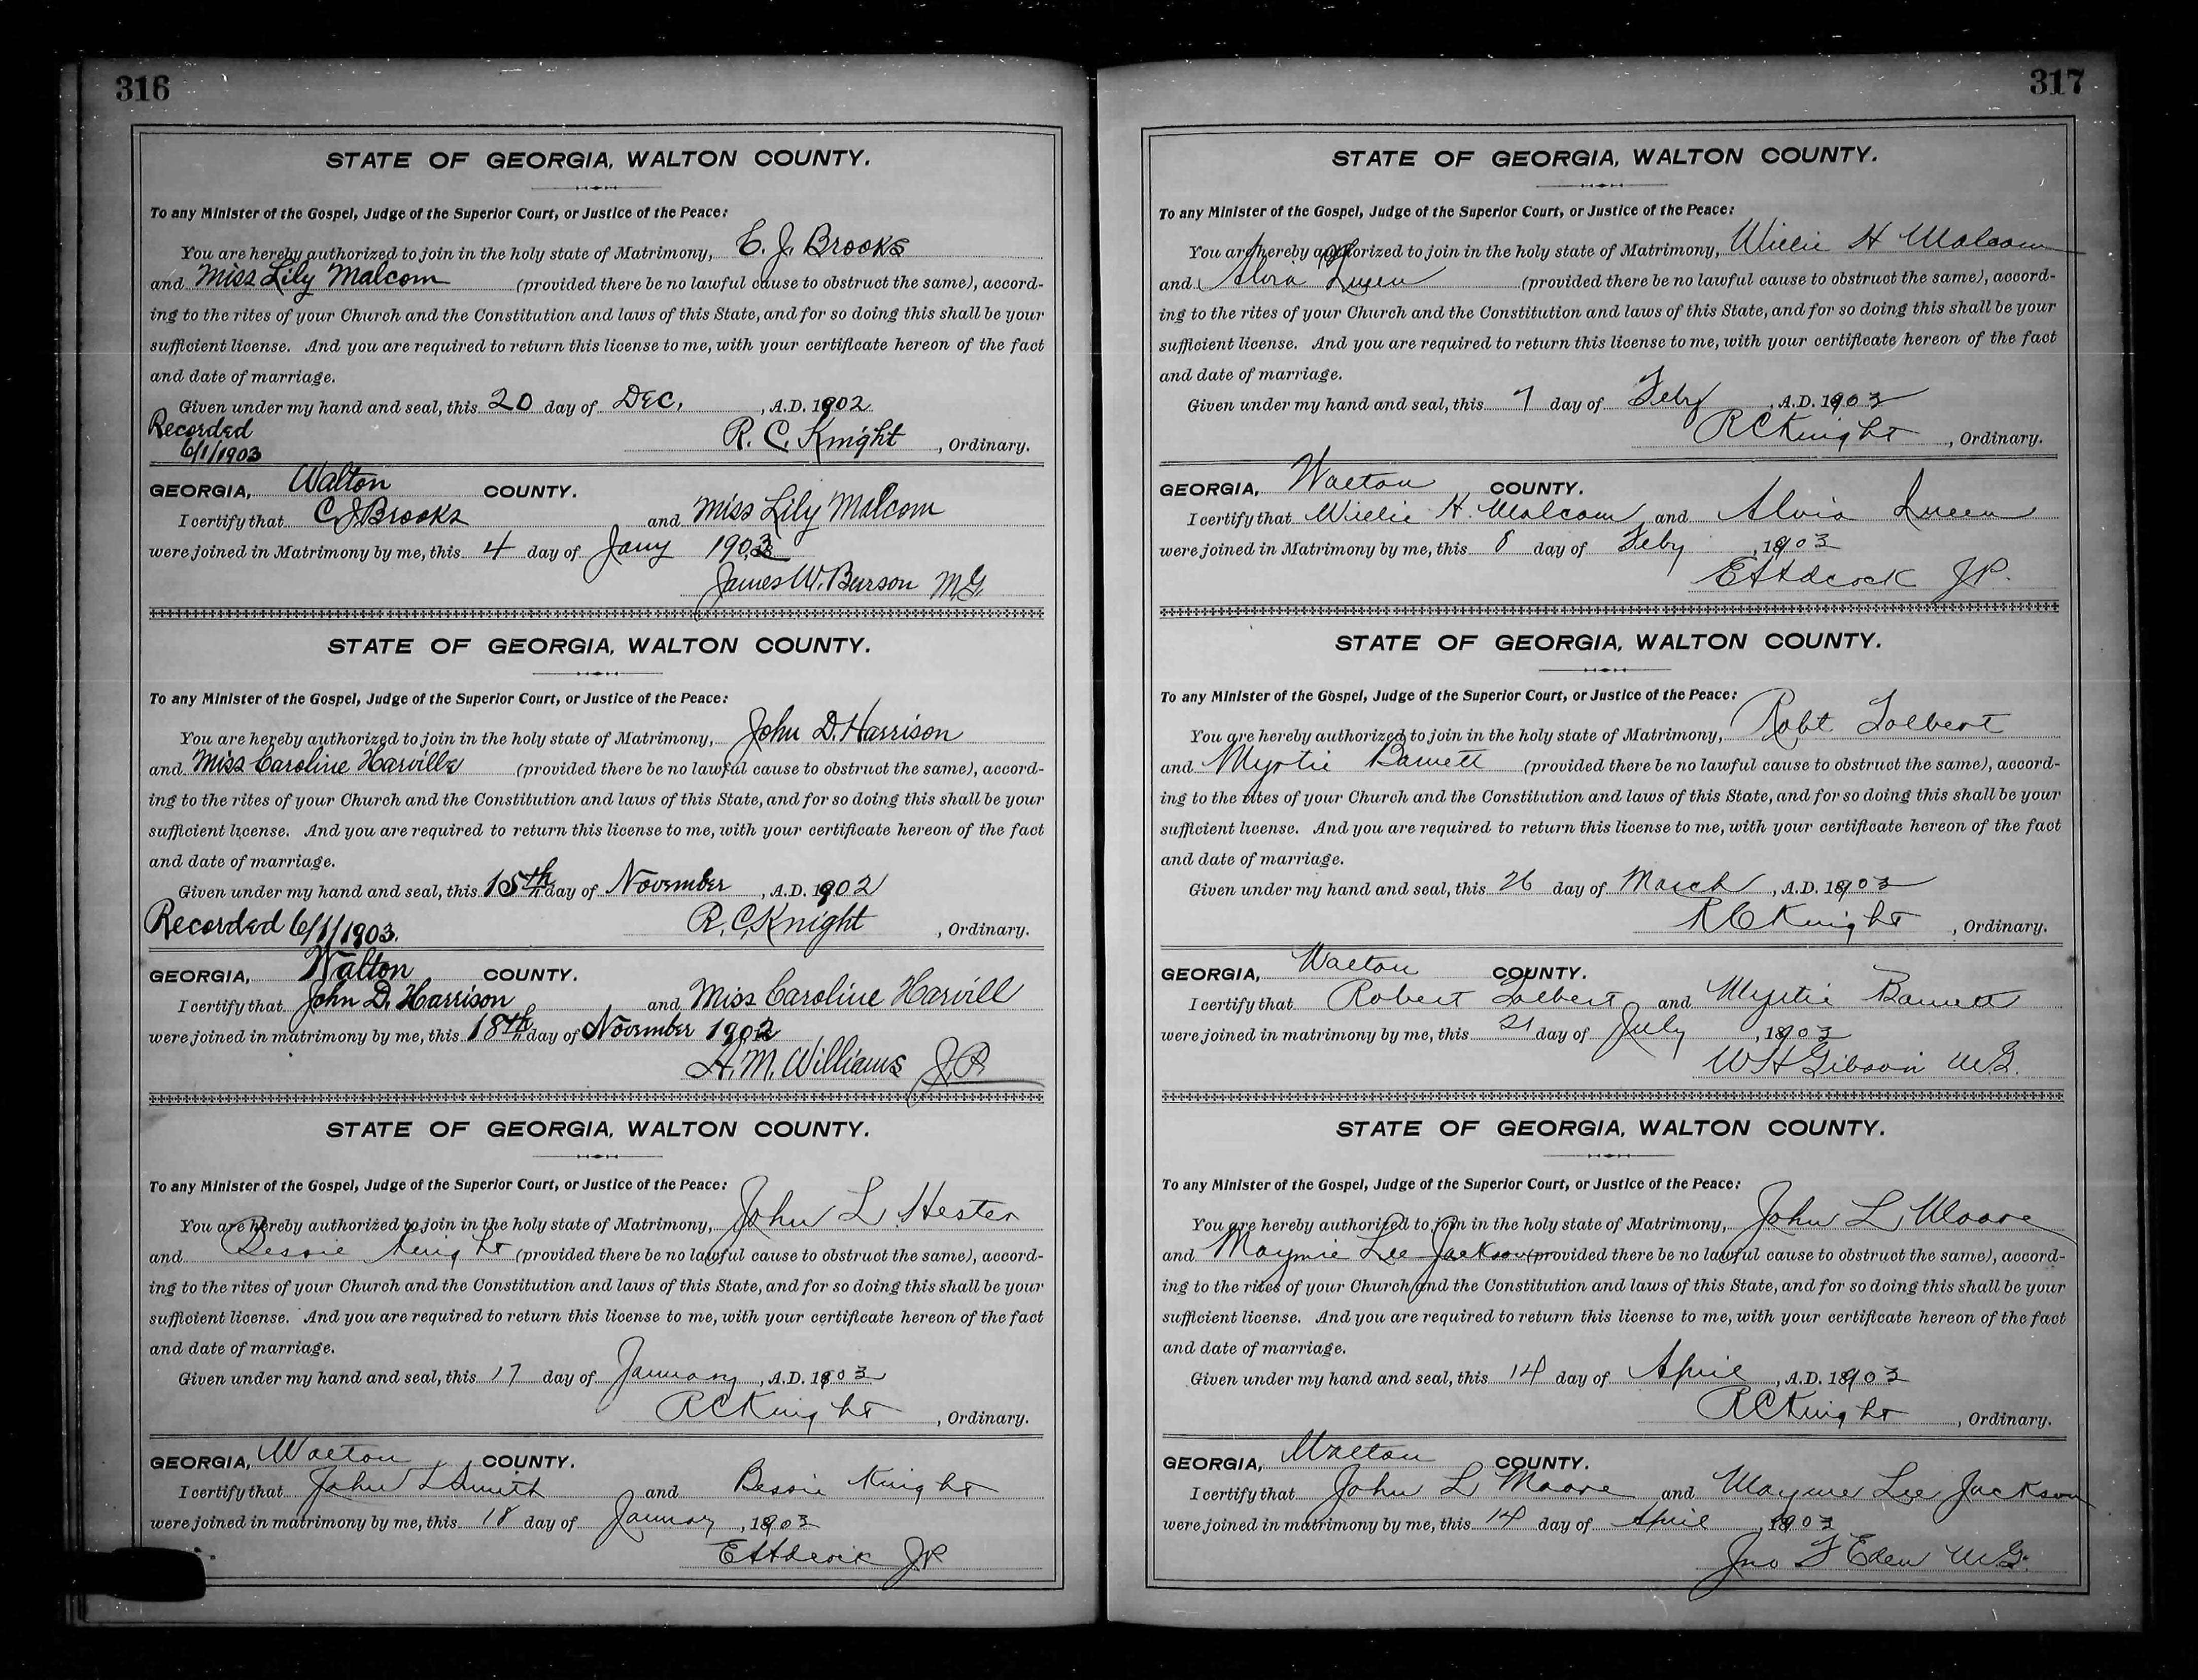 316
STATE OF GEORGIA, WALTON COUNTY.
To any Minister of the Gospel, Judge of the Superior Court, or Justice of the Peace:
You are hereby authorized to join in the holy state of Matrimony, C. J. Brooks
and Miss Lily Malcom (provided there be no lawful cause to obstruct the same), accord-
ing to the rites of your Church and the Constitution and laws of this State, and for so doing this shall be your
sufficient license. And you are required to return this license to me, with your certificate hereon of the fact
and date of marriage.
Given under my hand and seal, this 20 day of Dec, , A.D. 1902
Recorded
6/1/1903
R. C. Knight , Ordinary.
GEORGIA, Walton COUNTY.
I certify that C J Brooks and Miss Lily Malcom
were joined in Matrimony by me, this 4 day of Jany 1903
James W. Burson M.G.
STATE OF GEORGIA, WALTON COUNTY.
To any Minister of the Gospel, Judge of the Superior Court, or Justice of the Peace:
You are hereby authorized to join in the holy state of Matrimony, John D. Harrison
and Miss Caroline Harville (provided there be no lawful cause to obstruct the same), accord-
ing to the rites of your Church and the Constitution and laws of this State, and for so doing this shall be your
sufficient license. And you are required to return this license to me, with your certificate hereon of the fact
and date of marriage.
Given under my hand and seal, this 15th day of November , A.D. 1902
Recorded 6/1/1903.
R. C. Knight , Ordinary.
GEORGIA, Walton COUNTY.
I certify that John D. Harrison and Miss Caroline Harvill
were joined in matrimony by me, this 18th day of November 1902
A. M. Williams J.P.
STATE OF GEORGIA, WALTON COUNTY.
To any Minister of the Gospel, Judge of the Superior Court, or Justice of the Peace:
You are hereby authorized to join in the holy state of Matrimony, John L Hester
and Bessie Knight (provided there be no lawful cause to obstruct the same), accord-
ing to the rites of your Church and the Constitution and laws of this State, and for so doing this shall be your
sufficient license. And you are required to return this license to me, with your certificate hereon of the fact
and date of marriage.
Given under my hand and seal, this 17 day of January , A.D. 1903
R C Knight , Ordinary.
GEORGIA, Walton COUNTY.
I certify that John L Smith and Bessie Knight
were joined in matrimony by me, this 18 day of January , 1903
E H Adcock JP
317
STATE OF GEORGIA, WALTON COUNTY.
To any Minister of the Gospel, Judge of the Superior Court, or Justice of the Peace:
You are hereby authorized to join in the holy state of Matrimony, Willie H Malcom
and Alvia Queen (provided there be no lawful cause to obstruct the same), accord-
ing to the rites of your Church and the Constitution and laws of this State, and for so doing this shall be your
sufficient license. And you are required to return this license to me, with your certificate hereon of the fact
and date of marriage.
Given under my hand and seal, this 7 day of Feby , A.D. 1903
R C Knight , Ordinary.
GEORGIA, Walton COUNTY.
I certify that Willie H. Malcom and Alvia Queen
were joined in Matrimony by me, this 8 day of Feby , 1903
E H Adcock JP.
STATE OF GEORGIA, WALTON COUNTY.
To any Minister of the Gospel, Judge of the Superior Court, or Justice of the Peace:
You are hereby authorized to join in the holy state of Matrimony, Robt Tolbert
and Myrtie Barnett (provided there be no lawful cause to obstruct the same), accord-
ing to the rites of your Church and the Constitution and laws of this State, and for so doing this shall be your
sufficient license. And you are required to return this license to me, with your certificate hereon of the fact
and date of marriage.
Given under my hand and seal, this 26 day of March , A.D. 1903
R C Knight , Ordinary.
GEORGIA, Walton COUNTY.
I certify that Robert Tolbert and Myrtie Barnett
were joined in matrimony by me, this 21 day of July , 1903
W H Gibson M.G.
STATE OF GEORGIA, WALTON COUNTY.
To any Minister of the Gospel, Judge of the Superior Court, or Justice of the Peace:
You are hereby authorized to join in the holy state of Matrimony, John L Moore
and Maymie Lee Jackson (provided there be no lawful cause to obstruct the same), accord-
ing to the rites of your Church and the Constitution and laws of this State, and for so doing this shall be your
sufficient license. And you are required to return this license to me, with your certificate hereon of the fact
and date of marriage.
Given under my hand and seal, this 14 day of April , A.D. 1903
R C Knight , Ordinary.
GEORGIA, Walton COUNTY.
I certify that John L Moore and Maymie Lee Jackson
were joined in matrimony by me, this 14 day of April , 1903
Jno F Eden M.G.